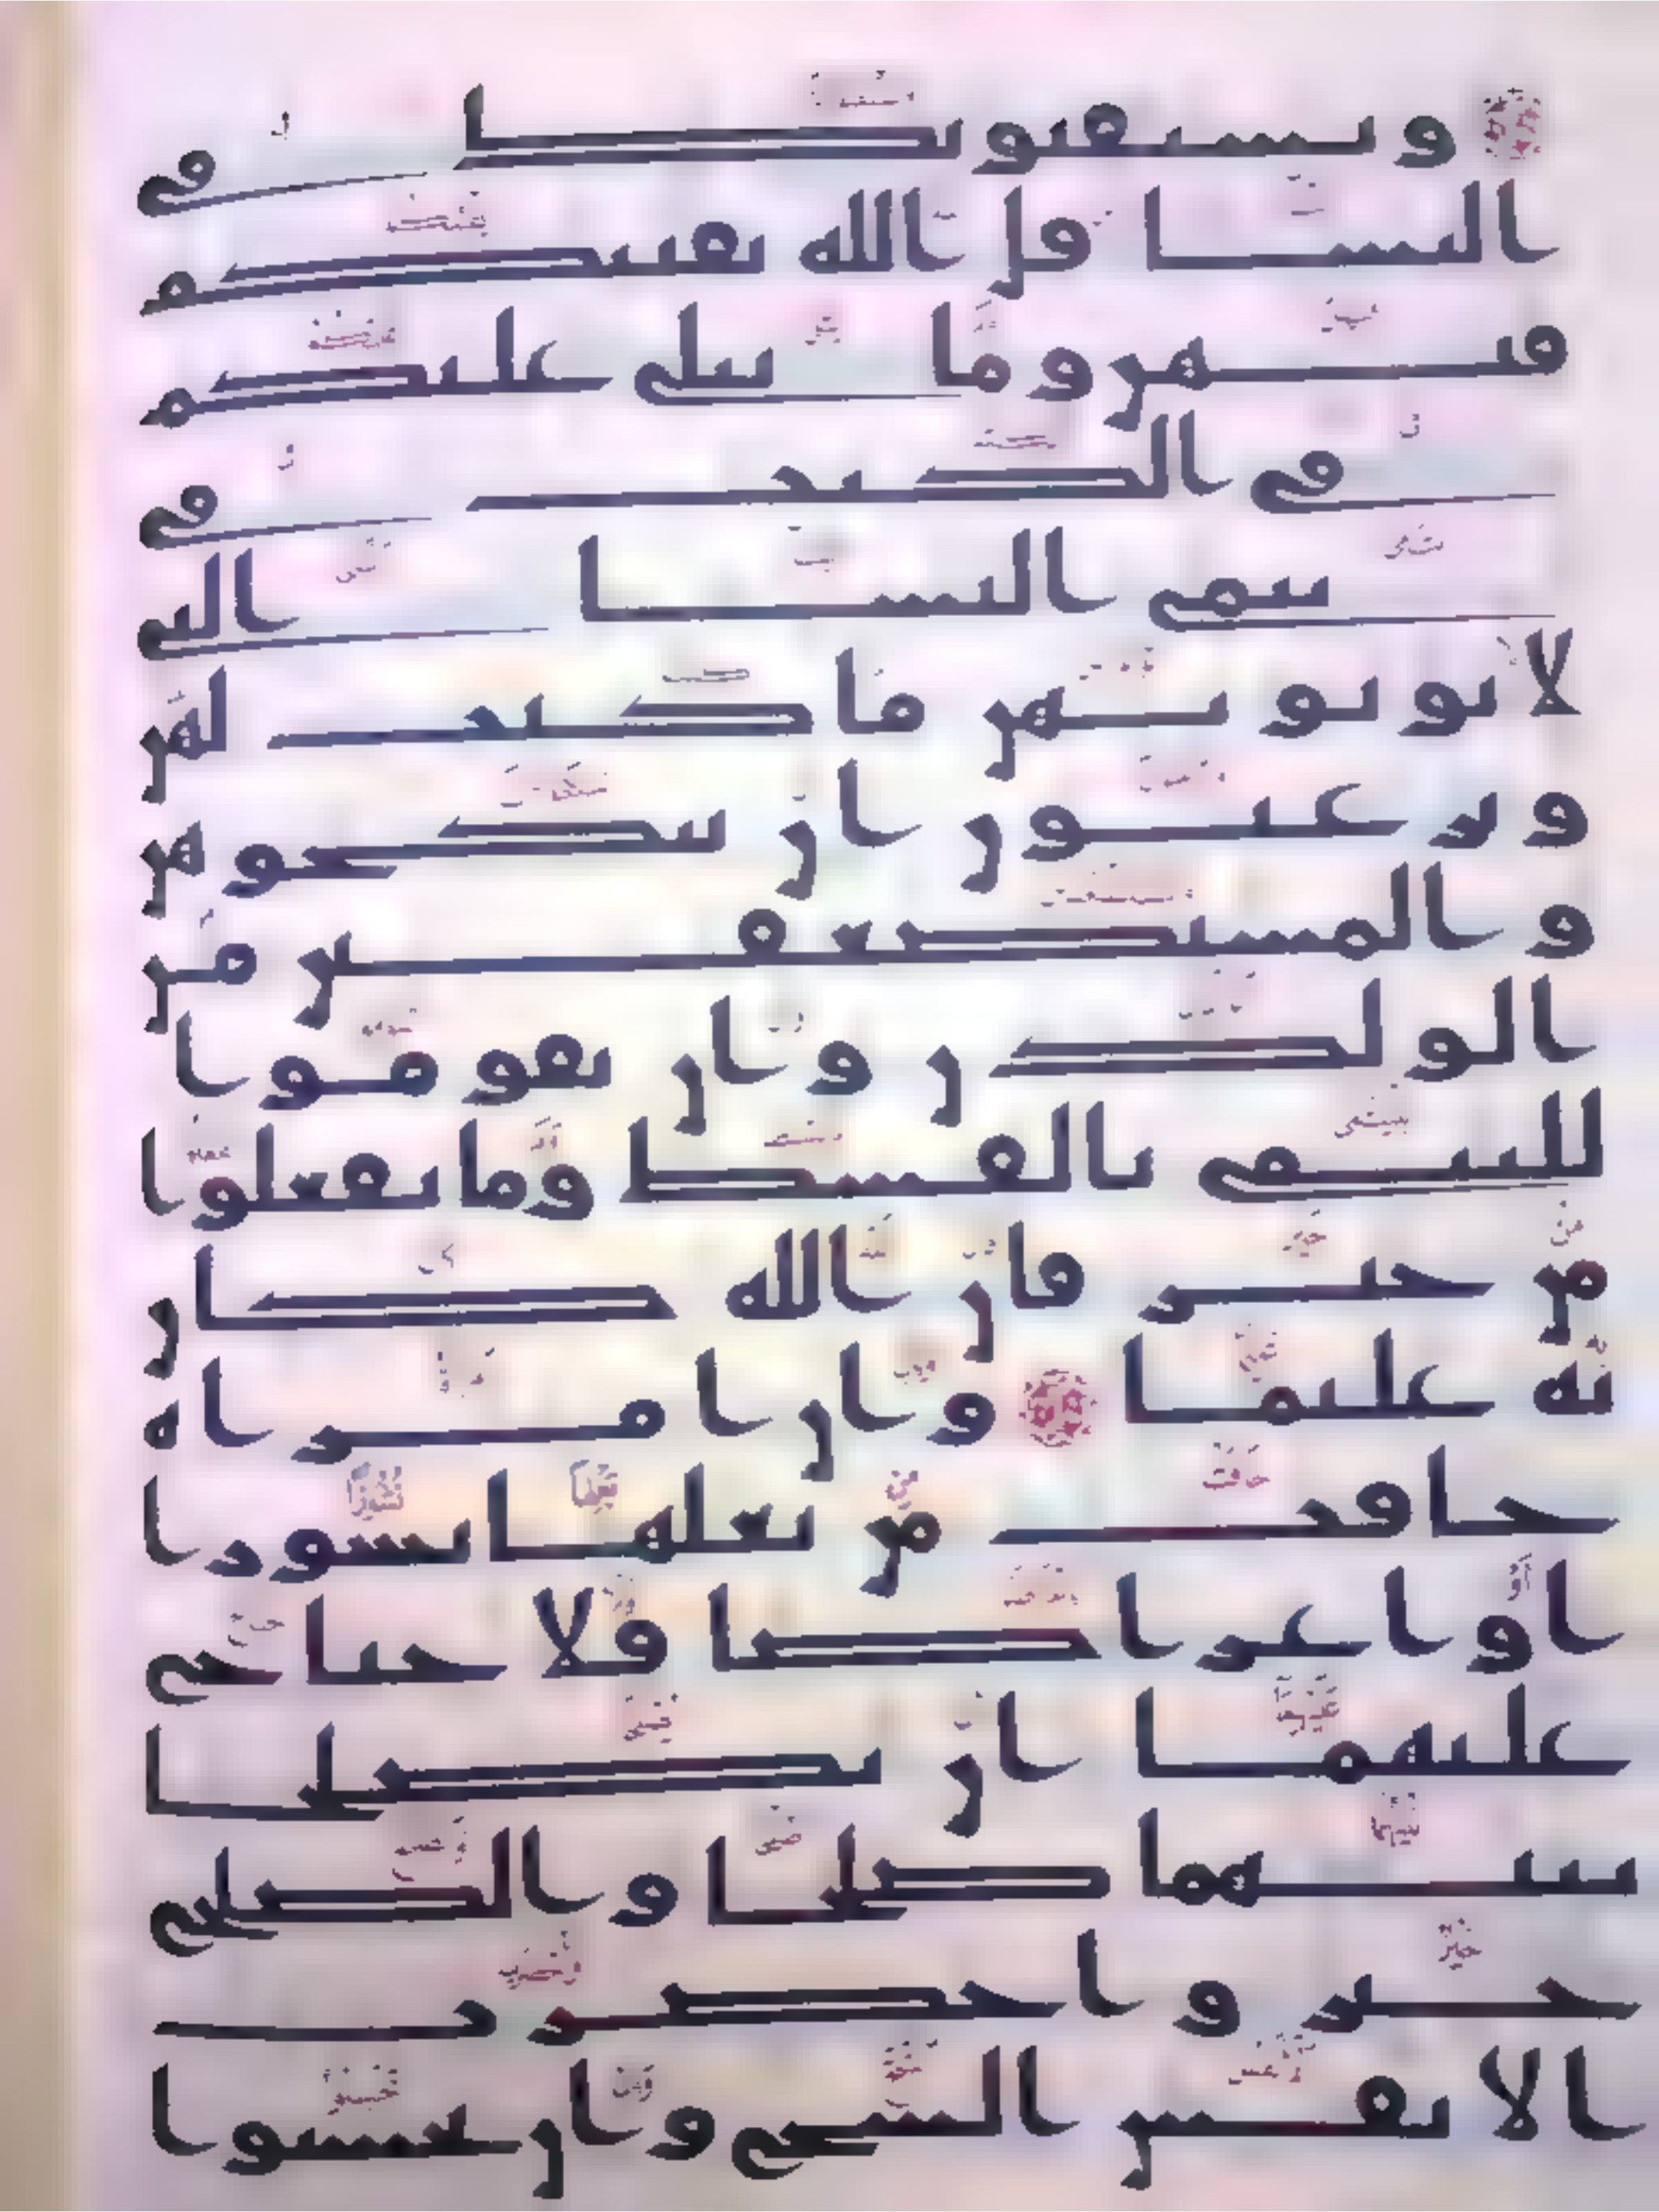 ويستفتونك في
النسا قل الله يفتيكم
فيهن وما يتلى عليكم
في الكتب في
يتمى النسا التي
لا توتونهن ما كتب لهن
وترغبون ان تنكحوهن
والمستضعفين من
الولدن وان تقوموا
لليتمى بالقسط وما تفعلوا
من خير فان الله كان
به عليما وان امراه
خافت من بعلها نشوزا
او اعراضا فلا جناح
عليهما ان يصلحا
بينهما صلحا والصلح
خير واحضرت
الانفس الشح وان تحسنوا